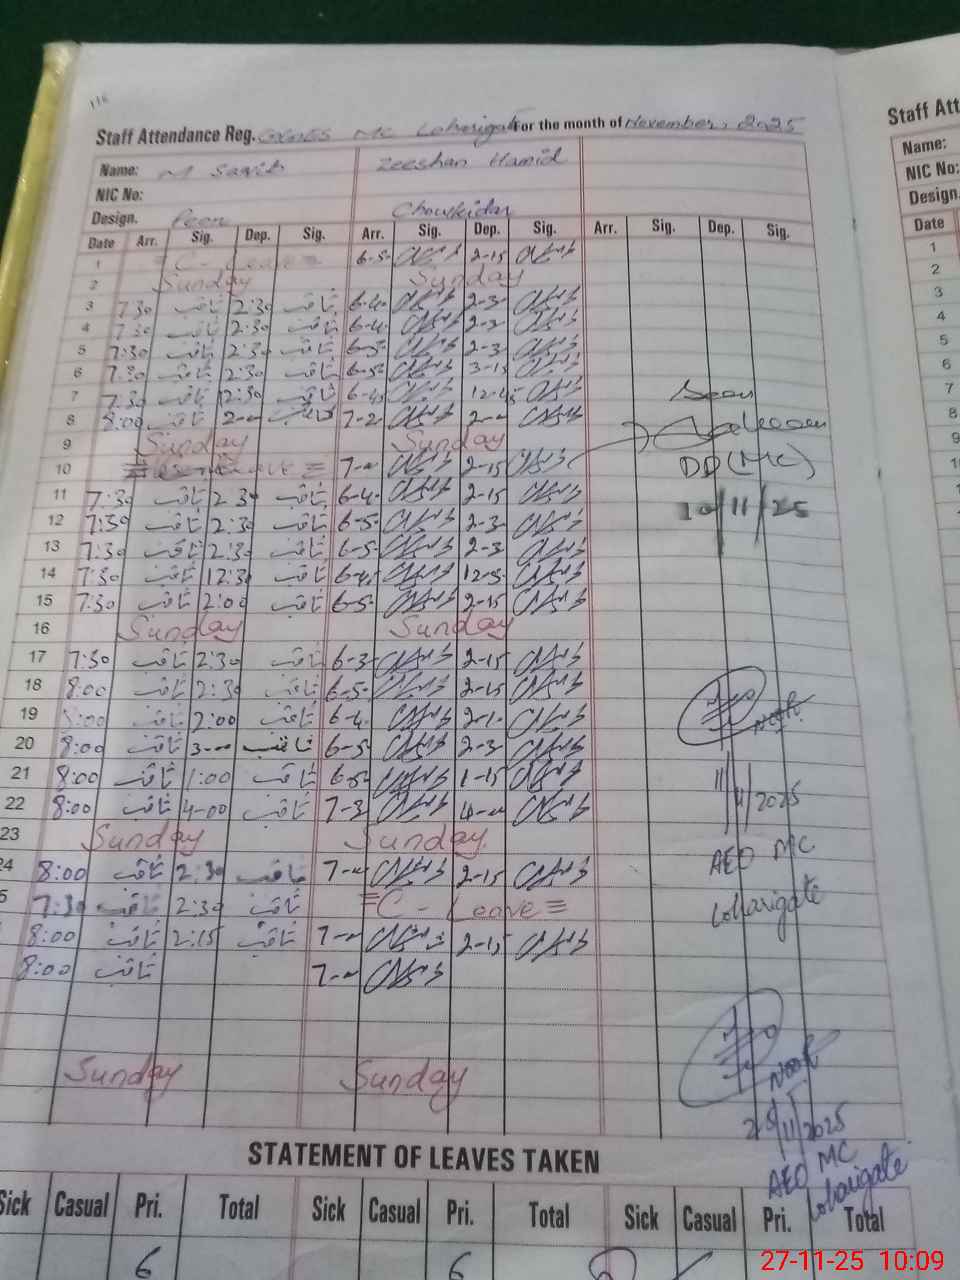 116
Staff Attendance Reg. MC Loharigate For the month of November, 2025
Staff Att
Name: M Saqib Zeeshan Hamid
Name:
NIC No:
NIC No:
Design. Peon Chowkidar
Design.
Date Arr. Sig. Dep. Sig. Arr. Sig. Dep. Sig. Arr. Sig. Dep. Sig.
Date
1 = C - Leave = 6-5 2-15
2 Sunday Sunday
3 7:30 ثاقب 2:30 ثاقب 6-4 2-3
4 7:30 ثاقب 2:30 ثاقب 6-4 2-2
5 7:30 ثاقب 2:30 ثاقب 6-5 2-3
6 7:30 ثاقب 2:30 ثاقب 6-5 3-15
7 7:30 ثاقب 12:30 ثاقب 6-4 12-45
8 8:00 ثاقب 2-00 ثاقب 7-2 2-00
9 Sunday Sunday
10 7-00 2-15
Seen
DD(MC)
10/11/25
11 7:30 ثاقب 2:30 ثاقب 6-4 2-15
12 7:30 ثاقب 2:30 ثاقب 6-5 2-3
13 7:30 ثاقب 2:30 ثاقب 6-5 2-3
14 7:30 ثاقب 12:30 ثاقب 6-4 12-5
15 7:30 ثاقب 2:00 ثاقب 6-5 2-15
16 Sunday Sunday
17 7:30 ثاقب 2:30 ثاقب 6-3 2-15
18 8:00 ثاقب 2:30 ثاقب 6-5 2-15
19 8:00 ثاقب 2:00 ثاقب 6-4 2-1
20 8:00 ثاقب 3-00 ثاقب 6-5 2-3
21 8:00 ثاقب 1:00 ثاقب 6-5 1-15
22 8:00 ثاقب 4-00 ثاقب 7-3 4-00
/11/2025
23 Sunday Sunday
AEO MC
24 8:00 ثاقب 2:30 ثاقب 7-00 2-15
5 7:30 ثاقب 2:30 ثاقب = C - Leave =
Loharigate
8:00 ثاقب 2:15 ثاقب 7-00 2-15
8:00 ثاقب 7-00
Sunday Sunday
25/11/2025
AEO MC
Loharigate
STATEMENT OF LEAVES TAKEN
Sick Casual Pri. Total Sick Casual Pri. Total Sick Casual Pri. Total
6 6
27-11-25 10:09